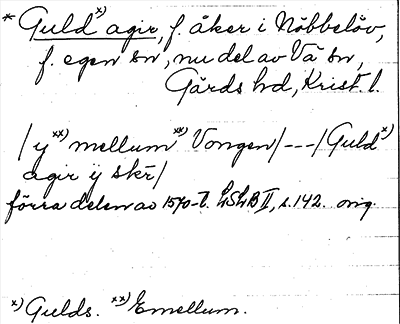 * Guld x) agir, f. åker i Nöbbelöv,
f. egen sn, nu del av Vä sn,
Gärds hd, Krist. l.
/ y xx) mellum xx) Vongen / --- / Guld x)
agir ij skr /
förra delen av 1570-t. LSLB II, s. 142. orig
x) Gulds. xx) Emellum.